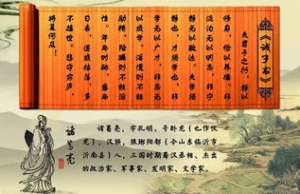 《诫子书》
夫君子之行，静以
修身，俭以养德。非
淡泊无以明志，非宁
静无以致远。夫学须
静也，才须学也，非
学无以广才，非志无
以成学。淫慢则不能
励精，险躁则不能治
性。年与时驰，意与
日去，遂成枯落，多
不接世，悲守穷庐，
将复何及！
诸葛亮
诸葛亮，字孔明、号卧龙（也作伏
龙），汉族，琅琊阳都（今山东临沂市
沂南县）人，三国时期蜀汉丞相、杰出
的政治家、军事家、发明家、文学家。